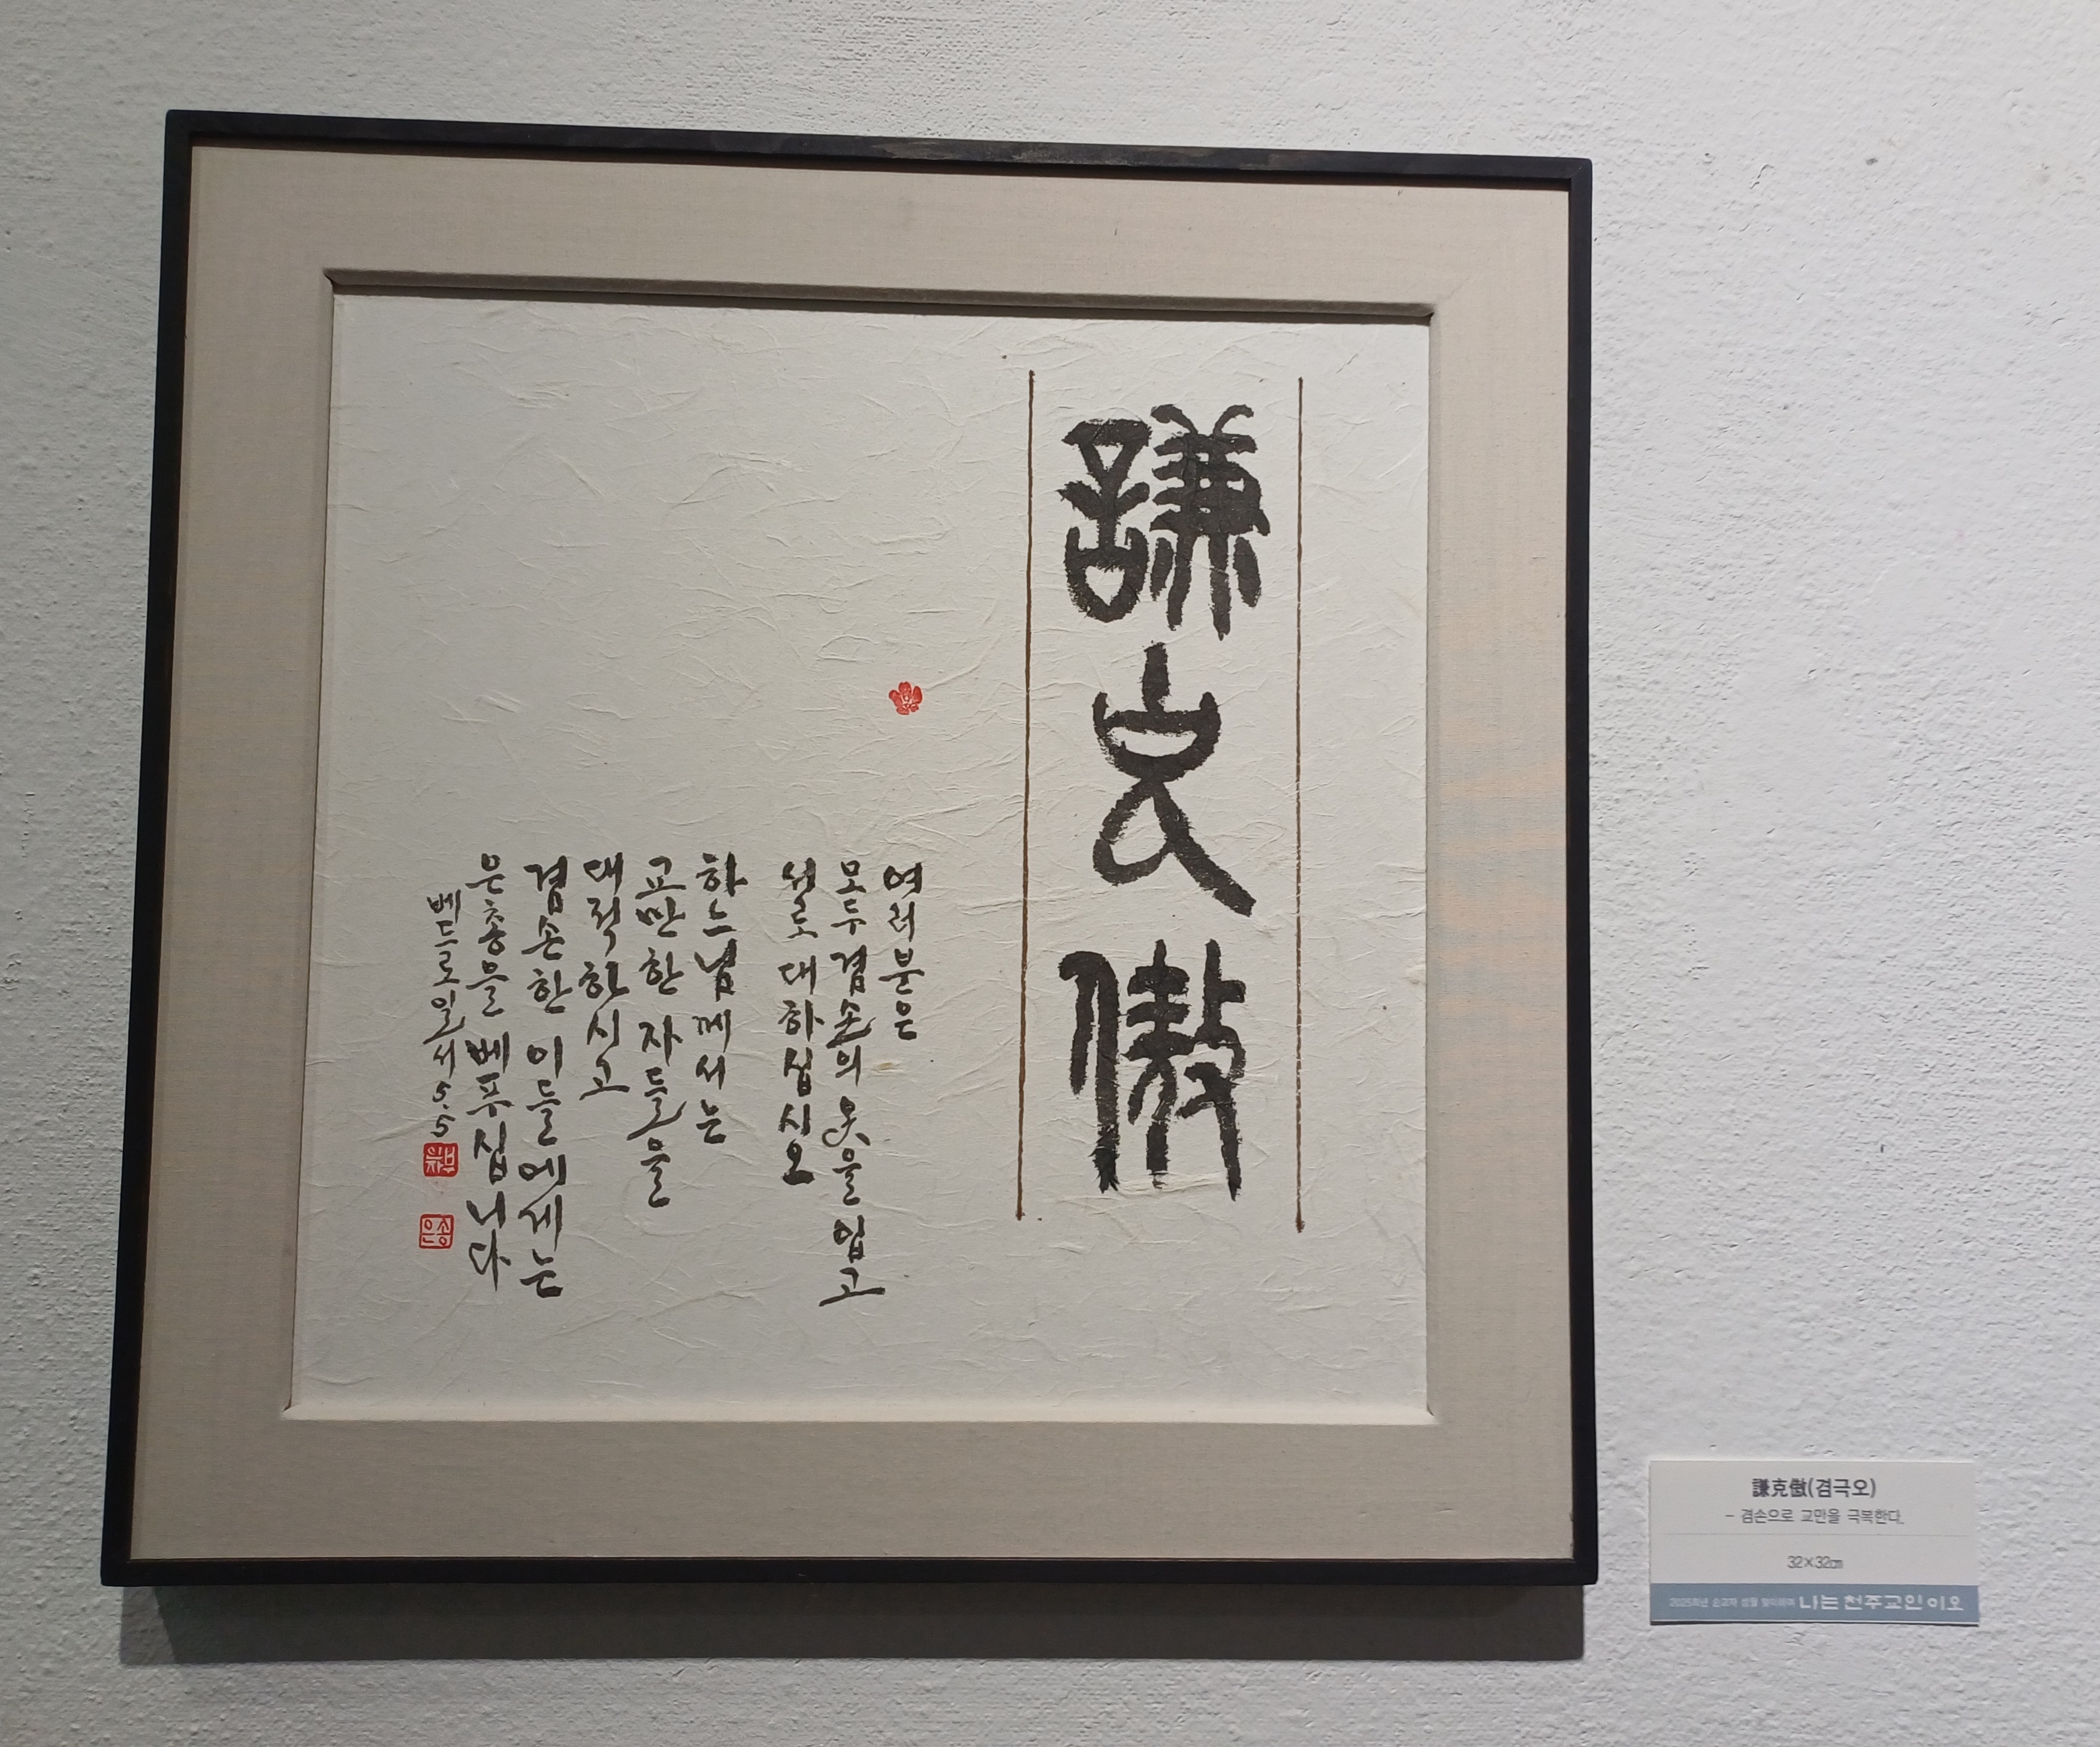 謙克傲
여러분은
모두 겸손의 옷을 입고
서로 대하십시오
하느님께서는
교만한 자들을
대적하시고
겸손한 이들에게는
은총을 베푸십니다
베드로일서 5.5
謙克傲(겸극오)
- 겸손으로 교만을 극복한다.
32×32㎝
2025희년 순교자 성월 맞이하여 나는 천주교인이오